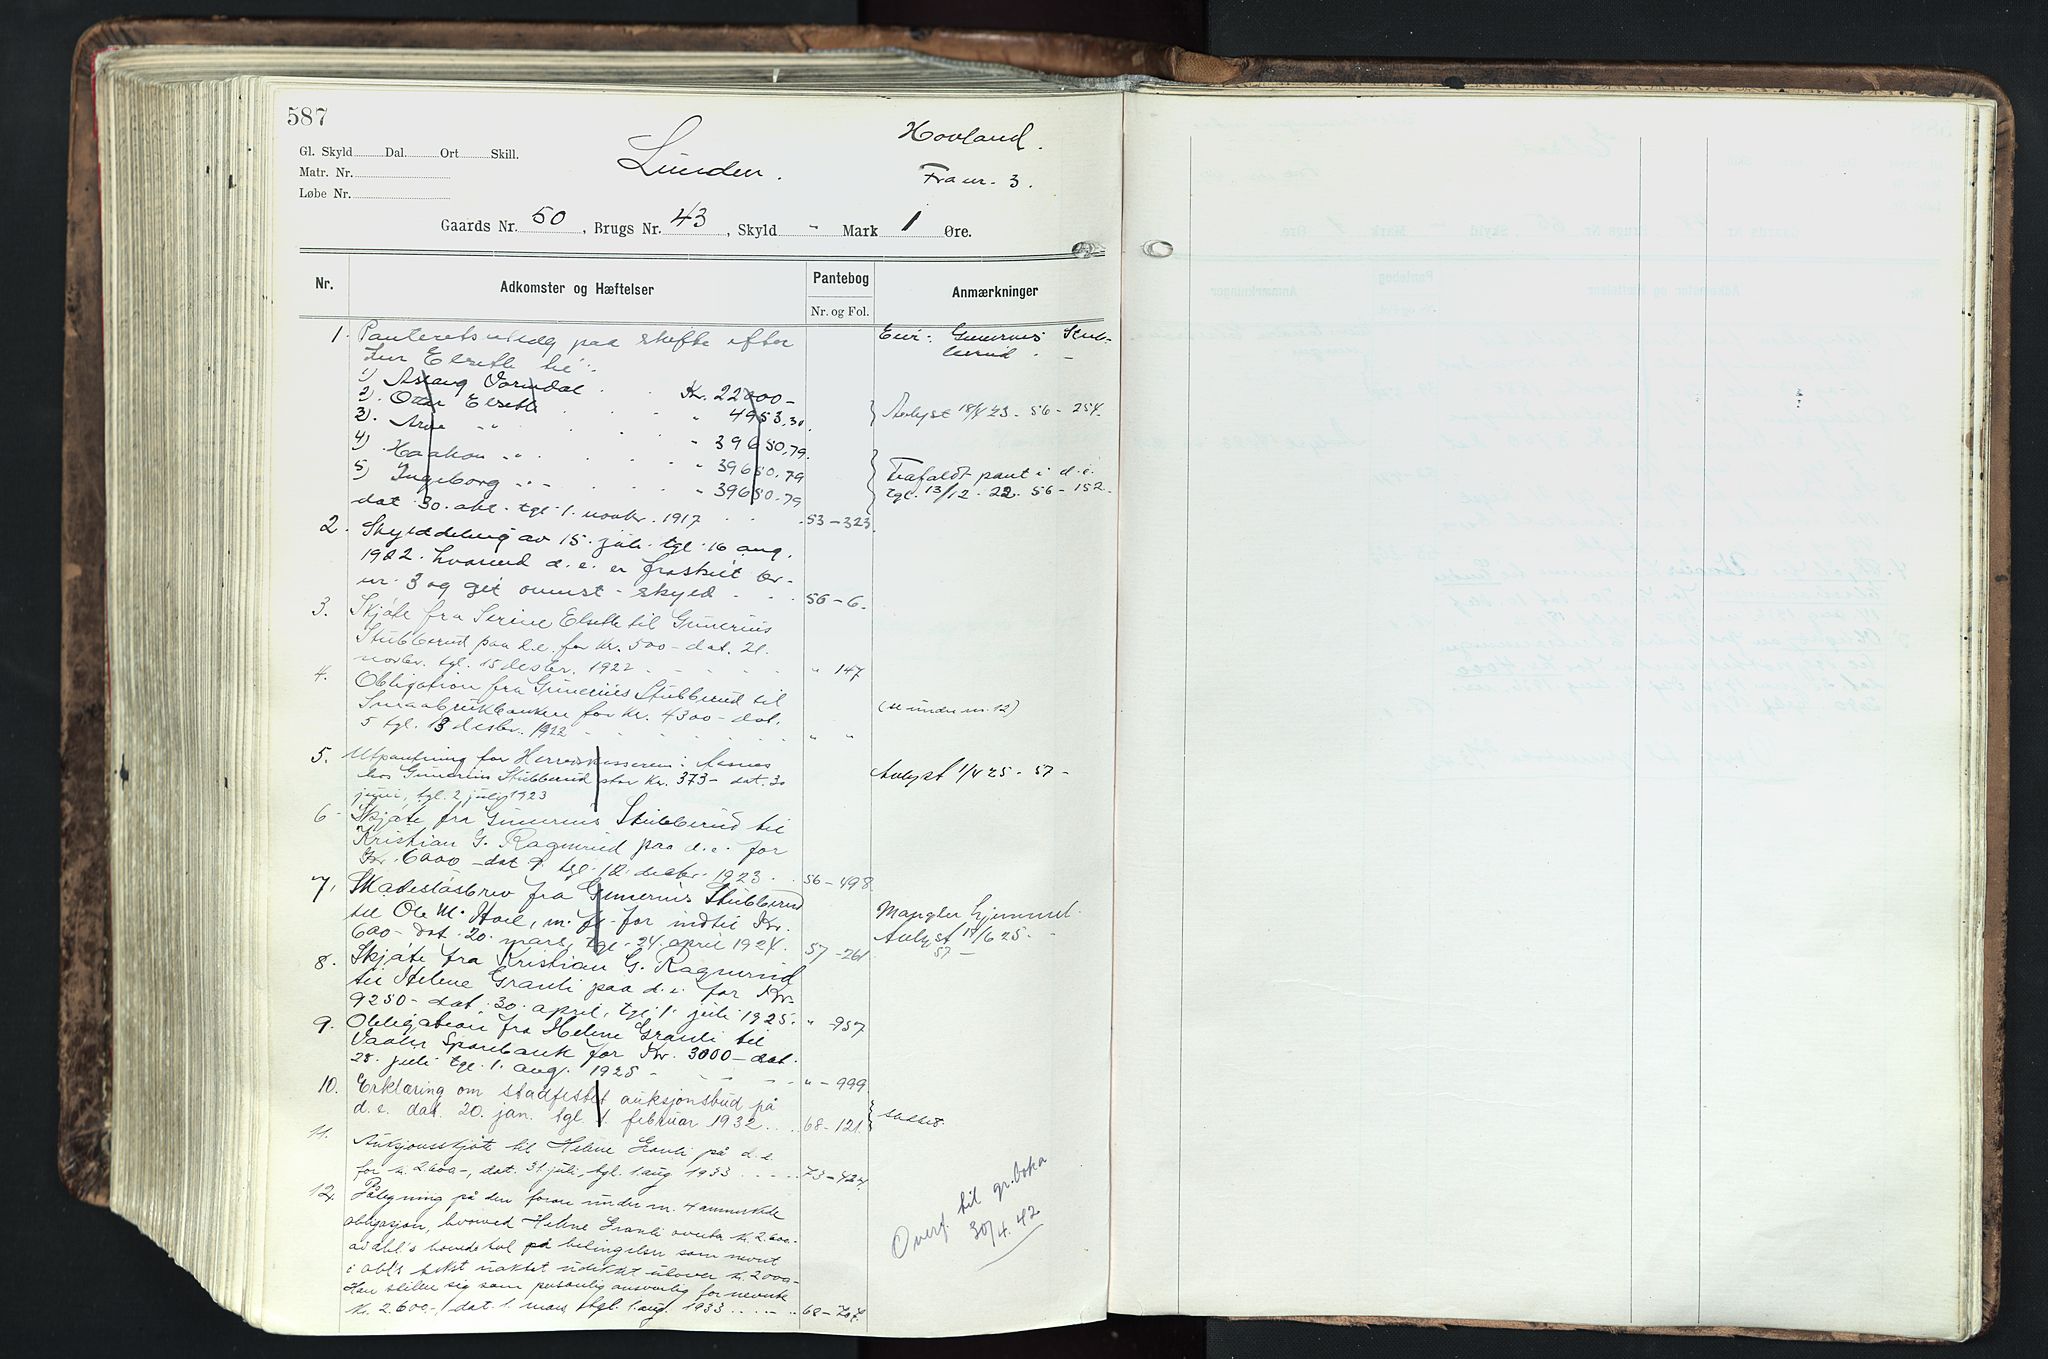 587
Gl. Skyld Dal. Ort Skill.
Matr. Nr.
Løbe Nr.
Lunden.
Hovland.
Fra nr. 3.
Gaards Nr. 50, Brugs Nr. 43, Skyld - Mark 1 Øre.
Nr. Adkomster og Hæftelser Pantebog Anmærkninger
Nr. og Fol.
1. Panteretsutlæg paa skifte efter
Elseth til:
Eier: Gunerius Stub-
berud. -
1) Aslaug Korndal . . Kr. 22000-
2). Ottar Elseth . . . " 4953,30
Avlyst 18/4 23 - 56 - 254.
3). Arne -"- . . . " 39680,79.
4) Haakon -"- . . . " 39680,79
5) Ingeborg -"- . . . " 39680,79
Frafaldt pant i d.e.
tgl. 13/12. 22. 56 - 152.
dat. 30. okt. tgl. 1. novbr. 1917 . . 53-323.
2. Skylddeling av 15. juli tgl. 16 aug.
1922. hvorved d.e. er fraskilt br-
nr. 3 og git ovennst. skyld . . . 56-6.
3. Skjøte fra Serine Elseth til Gunerius
Stubberud paa d.e. for kr. 500- dat. 21.
novbr. tgl. 15 desbr. 1922 . . . " 147
4. Obligation fra Gunerius Stubberud til
Smaabrukbanken for kr. 4300- dat.
5 tgl. 13 desbr. 1922 . . . " "
(se under nr. 12)
5. Utpantning for Herredskassereren i Aasnes
hos Gunerius Stubberud stor kr. 373- dat. 30
juni, tgl. 2 july 1923
Avlyst 1/4 25 - 57 -
6. Skjøte fra Gunerius Stubberud til
Kristian G. Ragnrud paa d.e. for
Kr. 6000 - dat 9. tgl. 12. desbr. 1923 . . 56-498
7. Skadesløsbrev fra Gunerius Stubberud
til Ole M. Hoel, m. fl. for indtil Kr.
600- dat. 20. mars, tgl. 24. april 1924. 57-261
Mangler hjemmel.
Avlyst 17/6 25.
57 -
8. Skjøte fra Kristian G. Ragnrud
til Helene Granli paa d.e. for Kr.
9250- dat. 30. april, tgl. 1. juli 1925. " -957
9. Obligation fra Helene Granli til
Vaaler Sparebank for Kr. 3000- dat.
28. juli tgl. 1. aug. 1925 - - - " -999
10. Erklæring om stadfestet auksjonsbud på
d.e. dat. 20. jan. tgl. 1. februar 1932 . . . 68-121.
slettet
11. Auksjonsskjøte til Helene Granli på d.e.
for kr. 2.600-, dat. 31. juli, tgl. 1 aug 1933 . . . 73-424.
12. Påtegning på den foran under nr. 4 anmerkede
obligasjon, hvorved Helene Granli overtar kr. 2.600.-
av obl.'s hovedstol på betingelser som nevnt
i obl's tekst kr. 2000-
Han stiller sig som personlig ansvarlig for nevnte
kr. 2.600.-, dat 1. mars, tgl. 1. aug. 1933 . . . 68-
Overf. til gr.boka
30/4. 42